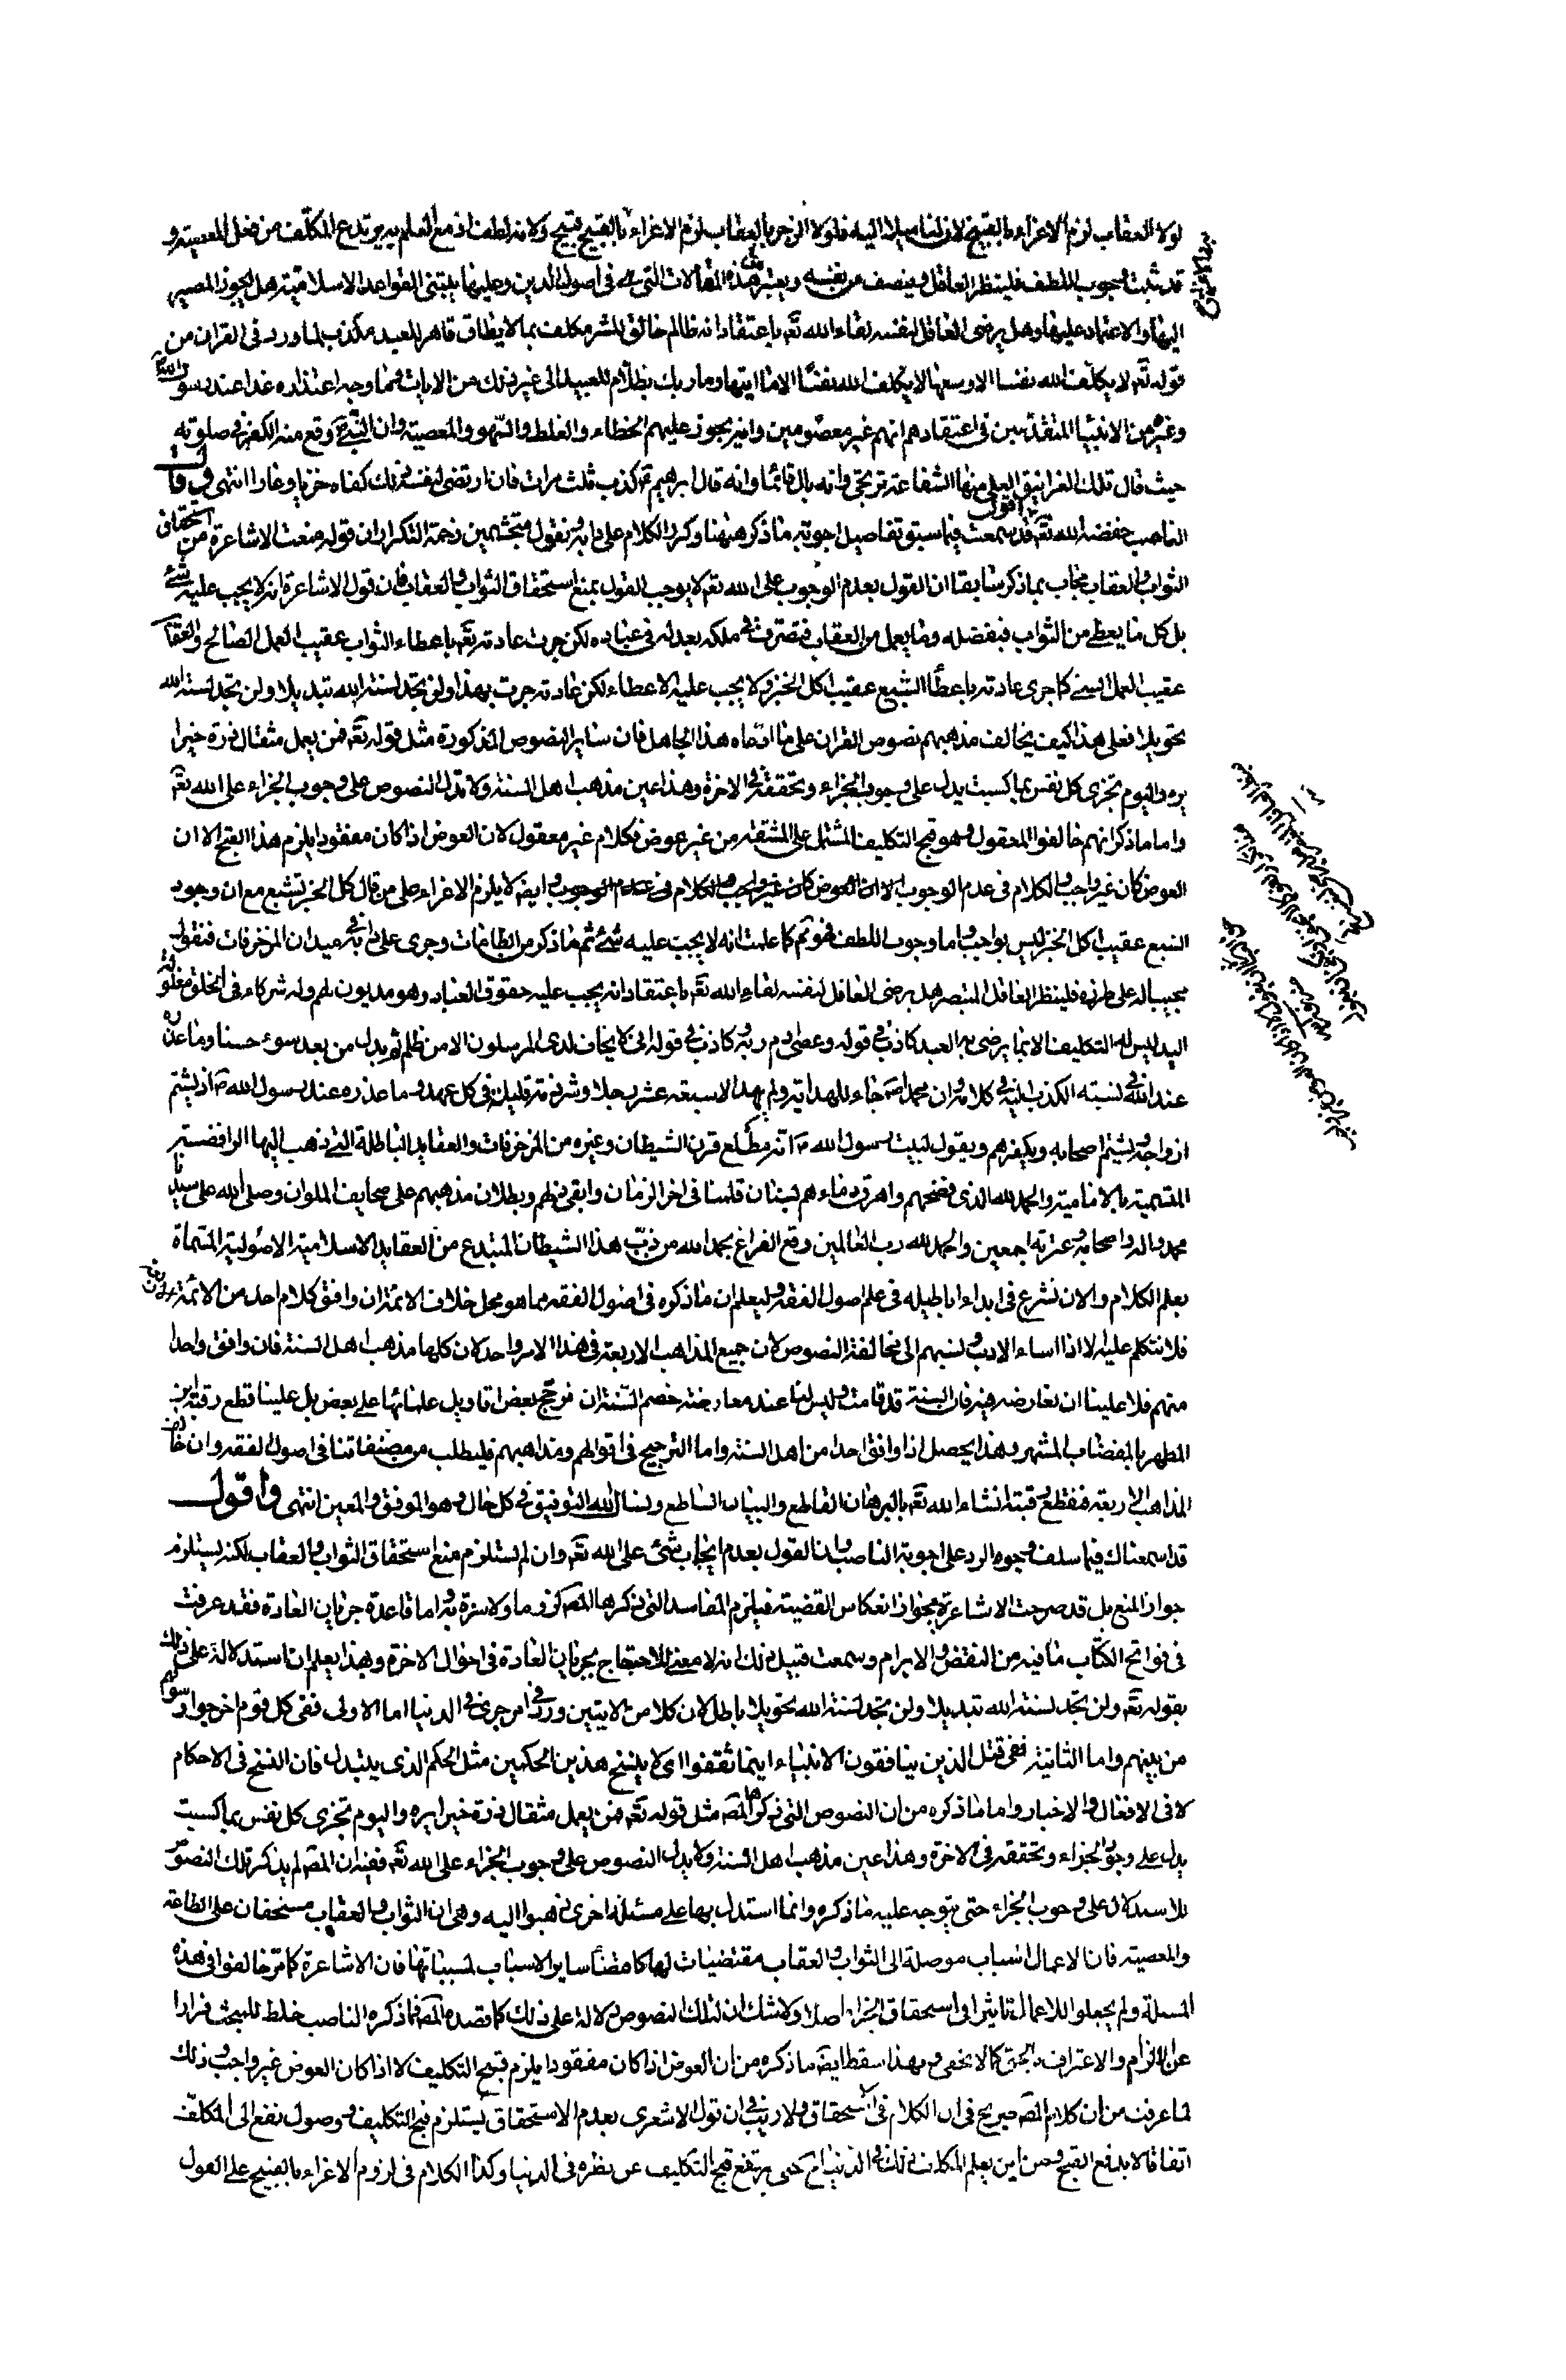 لولا العقاب لزم الاغراء بالقبيح لان لنا ميلا اليه فلولا الزجر بالعقاب لزم الاغراء به والاغراء بالقبيح قبيح ولانه لطف اذ مع العلم به يرتدع المكلف من فعل المعصية و
قد ثبت وجوب اللطف فلينظر العاقل وينصف من نفسه ويعتبر هذه المقالات التي هي في اصول الدين وعليها يبتنى القواعد الاسلامية هل يجوز المصير
اليها والاعتماد عليها وهل يرضى العاقل لنفسه لقاء الله تع باعتقاد انه ظالم خالق للشر مكلف بما لا يطاق قاهر للعبد مكذب لما ورد في القران من
قوله تع لا يكلف الله نفسا الا وسعها لا يكلف الله نفسا الا ما اتيها وما ربك بظلام للعبيد الى غير ذلك من الايات فما وجه اعتذاره غدا عند رسول الله
وغيره من الانبيا المتقدمين في اعتقادهم انهم غير معصومين وانه يجوز عليهم الخطاء والغلط والسهو والمعصية وان النبي ص وقع منه الكفر في صلوته
حيث قال تلك الغرانيق العلى منها الشفاعة ترتجى وانه بال قائما وانه قال ابرهيم ع كذب ثلث مرات فان ارتضى لنفسه ذلك كفاه خزيا وعارا انتهى وقال
الناصب خفضه الله تع اقول قد سمعت فيما سبق تفاصيل اجوبة ما ذكر ههنا وكرر الكلام على دابه ونقول متجشمين زحمة التكرار ان قوله منعت الاشاعرة من استحقاق
الثواب والعقاب مجاب بما ذكر سابقا ان القول بعدم الوجوب على الله تع لا يوجب القول بمنع استحقاق الثواب والعقاب فان قول الاشاعرة انه لا يجب عليه شئ
بل كل ما يعطى من الثواب فبفضله وما يعمل من العقاب فتصرف في ملكه بعدله في عباده لكن جرت عادته تع باعطاء الثواب عقيب العمل الصالح والعقاب
عقيب العمل السئ كما جرى عادته باعطاء الشبع عقيب اكل الخبز ولا يجب عليه الاعطاء لكن عادته جرت بهذا ولن تجد لسنة الله تبديلا ولن تجد لسنة الله
تحويلا فعلى هذا كيف يخالف مذهبهم نصوص القران على ما ادعاه هذا الجاهل فان ساير النصوص المذكورة مثل قوله تع فمن يعمل مثقال ذرة خيرا
يره واليوم تجزى كل نفس بما كسبت يدل على وجود الجزاء وتحققه في الاخرة وهذا عين مذهب اهل السنة ولا تدل النصوص على وجوب الجزاء على الله تع
واما ما ذكر انهم خالفوا المعقول وهو قبح التكليف المشتمل على المشقة من غير عوض فكلام غير معقول لان العوض اذا كان مفقودا يلزم هذا القبح الا ان
العوض كان غير واجب والكلام في عدم الوجوب وايضا لا يلزم الاغراء على من قال كل الخبز تشبع مع ان وجود
الشبع عقيب اكل الخبز ليس بواجب واما وجوب اللطف فهو مم كما علمت انه لا يجب عليه شئ ثم ما ذكر من الطامات وجرى على دابه في ميدان المزخرفات فنقول
مجيبا له على طرزه فلينظر العاقل المتبصر هل يرضى العاقل لنفسه لقاء الله تع باعتقاد انه يجب عليه حقوق العباد وهو مديون لهم وله شركاء في الخلق مغلولة
اليد ليس له التكليف الا بما يرضى به العبد كاذب في قوله وعصى ادم ربه وكاذب في قوله اني لا يخاف لدي المرسلون الا من ظلم ثم بدل من بعد سوء حسنا وما عذره
عند الله في نسبته الكذب اليه في كلامه وان محمدا ص جاء للهداية ولم يهد الا سبعة عشر رجلا وشرذمة قليلة في كل عهد وما عذره عند رسول الله ص اذ يشتم
ازواجه ويشتم اصحابه ويكفرهم ويقول لبيت رسول الله ص انه مطلع قرن الشيطان وغيره من المزخرفات والعقايد الباطلة التي ذهب اليها الرافضة
المتسمية بالامامية والحمد لله الذي فضحهم واهرق دماءهم لبنان قلمنا في اخر الزمان وابقى ذلهم وبطلان مذهبهم على صحايف الملوان وصلى الله على سيدنا
محمد واله واصحابه وعترته اجمعين والحمد لله رب العالمين وقع الفراغ بحمد الله من ذب هذا الشيطان المبتدع من العقايد الاسلامية الاصولية المسماة
بعلم الكلام والان نشرع في ابداء اباطيله في علم اصول الفقه وليعلم ان ما ذكره في اصول الفقه مما هو محل خلاف الائمة ان وافق كلام احد من الائمة الاربعة
فلا نتكلم عليه الا اذا اساء الادب ونسبهم الى مخالفة النصوص لان جميع المذاهب الاربعة في هذا الامر واحد لان كلها مذهب اهل السنة فان وافق واحدا
منهم فلا علينا ان نعارضه فيه فان السنة قد قامت وليس لنا عند معارضة خصم السنة ان نرجح بعض اقاويل علمائها على بعض بل علينا قطع رقبة ابن
المطهر بالمقضاب المشهر وهذا يحصل اذا وافق احدا من اهل السنة واما الترجيح في اقوالهم ومذاهبهم فليطلب من مصنفاتنا في اصول الفقه وان خالف
المذاهب الاربعة فنقطع رقبته انشاء الله تع بالبرهان القاطع والبيان الساطع ونسال الله التوفيق في كل حال وهو الموفق والمعين انتهى واقول
قد اسمعناك فيما سلف وجوه الرد على اجوبة الناصب وان القول بعدم ايجاب شئ على الله تع وان لم يستلزم منع استحقاق الثواب والعقاب لكنه يستلزم
جواز المنع بل قد صرحت الاشاعرة بجواز انعكاس القضية فيلزم المفاسد التي ذكرها المص لزوما ولا سترة به واما قاعدة جريان العادة فقد عرفت
في فواتح الكتاب ما فيه من النقض والابرام وسمعت قبيل ذلك انه لا معنى للاحتجاج بجريان العادة في احوال الاخرة وبهذا يعلم ان استدلاله على ذلك
بقوله تع ولن تجد لسنة الله تبديلا ولن تجد لسنة الله تحويلا باطل لان كلا من الايتين ورد في امر جرى في الدنيا اما الاولى ففي كل قوم اخرجوا رسولهم
من بينهم واما الثانية ففي قتل الذين ينافقون الانبياء اينما ثقفوا اي لا ينسخ هذين الحكمين مثل الحكم الذي يتبدل فان النسخ في الاحكام
لا في الافعال والاخبار واما ما ذكره من ان النصوص التي ذكرها المص مثل قوله تع فمن يعمل مثقال ذرة خيرا يره واليوم تجزى كل نفس بما كسبت
يدل على وجود الجزاء وتحققه في الاخرة وهذا عين مذهب اهل السنة ولا يدل النصوص على وجوب الجزاء على الله تع ففيه ان المص لم يذكر تلك النصوص
للاستدلال على وجوب الجزاء حتى يتوجه عليه ما ذكره وانما استدل بها على مسئلة اخرى ذهبوا اليه وهي ان الثواب والعقاب مستحقان على الطاعة
والمعصية فان الاعمال اسباب موصلة الى الثواب والعقاب مقتضيات لها كاقتضاء ساير الاسباب لمسبباتها فان الاشاعرة كما مر خالفوا في هذه
المسئلة ولم يجعلوا للاعمال تاثيرا في استحقاق الجزاء اصلا ولا شك ان لتلك النصوص دلالة على ذلك كما قصده المص فما ذكره الناصب خلط للبحث فرارا
عن الالزام والاعتراف بالحق كما لا يخفى وبهذا سقط ايض ما ذكره من ان العوض اذا كان مفقودا يلزم قبح التكليف لا اذا كان العوض غير واجب وذلك
لما عرفت من ان كلام المص صريح في ان الكلام في الاستحقاق ولا ريب في ان قول الاشعري بعدم الاستحقاق يستلزم قبح التكليف ووصول نفع الى المكلف
اتفاقا لا يدفع القبح ومن اين يعلم المكلف ذلك في الدنيا حتى يرتفع قبح التكليف عن نظره في الدنيا وكذا الكلام في لزوم الاغراء بالقبيح على القول